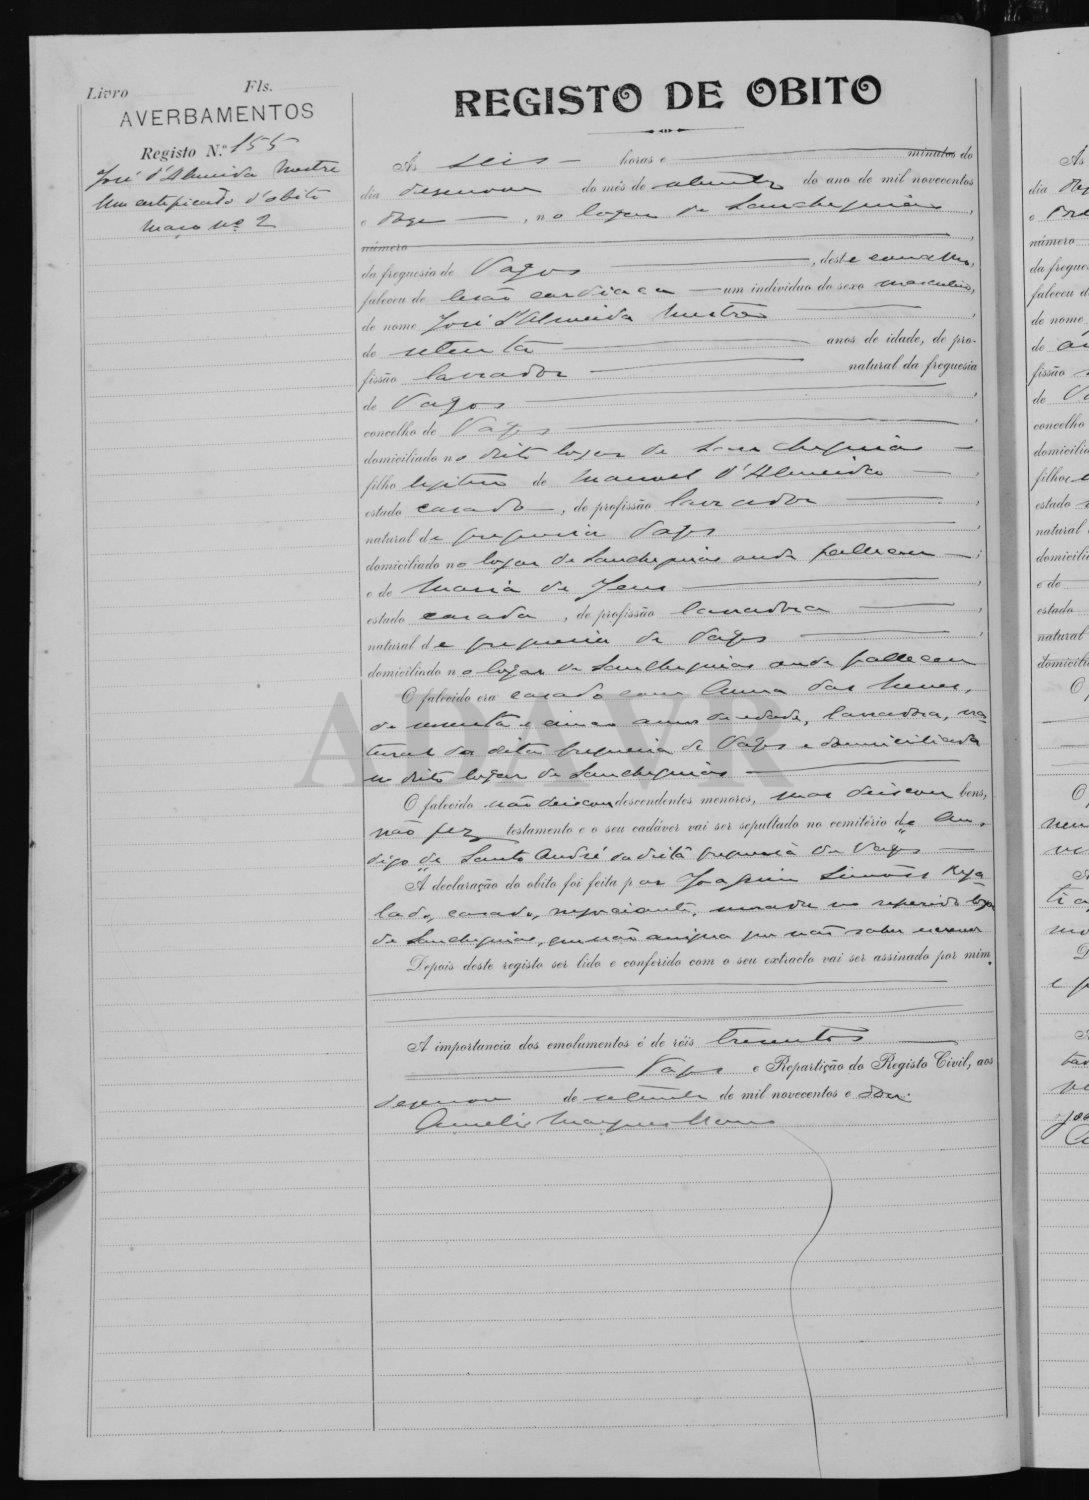 Livro Fls.
AVERBAMENTOS
Registo N.º 155
José d'Almeida Mestre
Um certificado d'obito
Maço nº 2
REGISTO DE OBITO
Ás seis horas e minutos do
dia desenove do mês de setembro do ano de mil novecentos
e doze, no logar de Sanchequias,
número
da freguesia de Vagos, deste concelho,
faleceu de lesão cardiaca um individuo do sexo masculino,
de nome José d'Almeida Mestre,
de setenta anos de idade, de pro-
fissão lavrador natural da freguesia
de Vagos,
concelho de Vagos,
domiciliado no dito logar de Sanchequias
filho legitimo de Manuel d'Almeida,
estado casado, de profissão lavrador,
natural de freguesia Vagos,
domiciliado no logar de Sanchequias onde falleceu;
e de Maria de Jesus,
estado casada, de profissão lavradora,
natural de freguesia de Vagos,
domiciliado no logar de Sanchequias onde falleceu
O falecido era casado com Anna das Neves,
de e cinco annos de edade, lavradora, na-
tural da dita freguesia de Vagos e domiciliada
no dito logar de Sanchequias
O falecido não deixou descendentes menores, mas deixou bens,
não fez testamento e o seu cadáver vai ser sepultado no cemitério de An,
digo de Santo André da dita freguesia de Vagos
A declaração do obito foi feita por Joaquim Simões
lado, casado, negociante, morador no referido logar
de Sanchequias, que não assigna por não saber escrever
Depois deste registo ser lido e conferido com o seu extracto vai ser assinado por mim.
A importancia dos emolumentos é de réis trezentos
Vagos e Repartição do Registo Civil, aos
desenove de setembro de mil novecentos e doze.
Marques
ADAVR